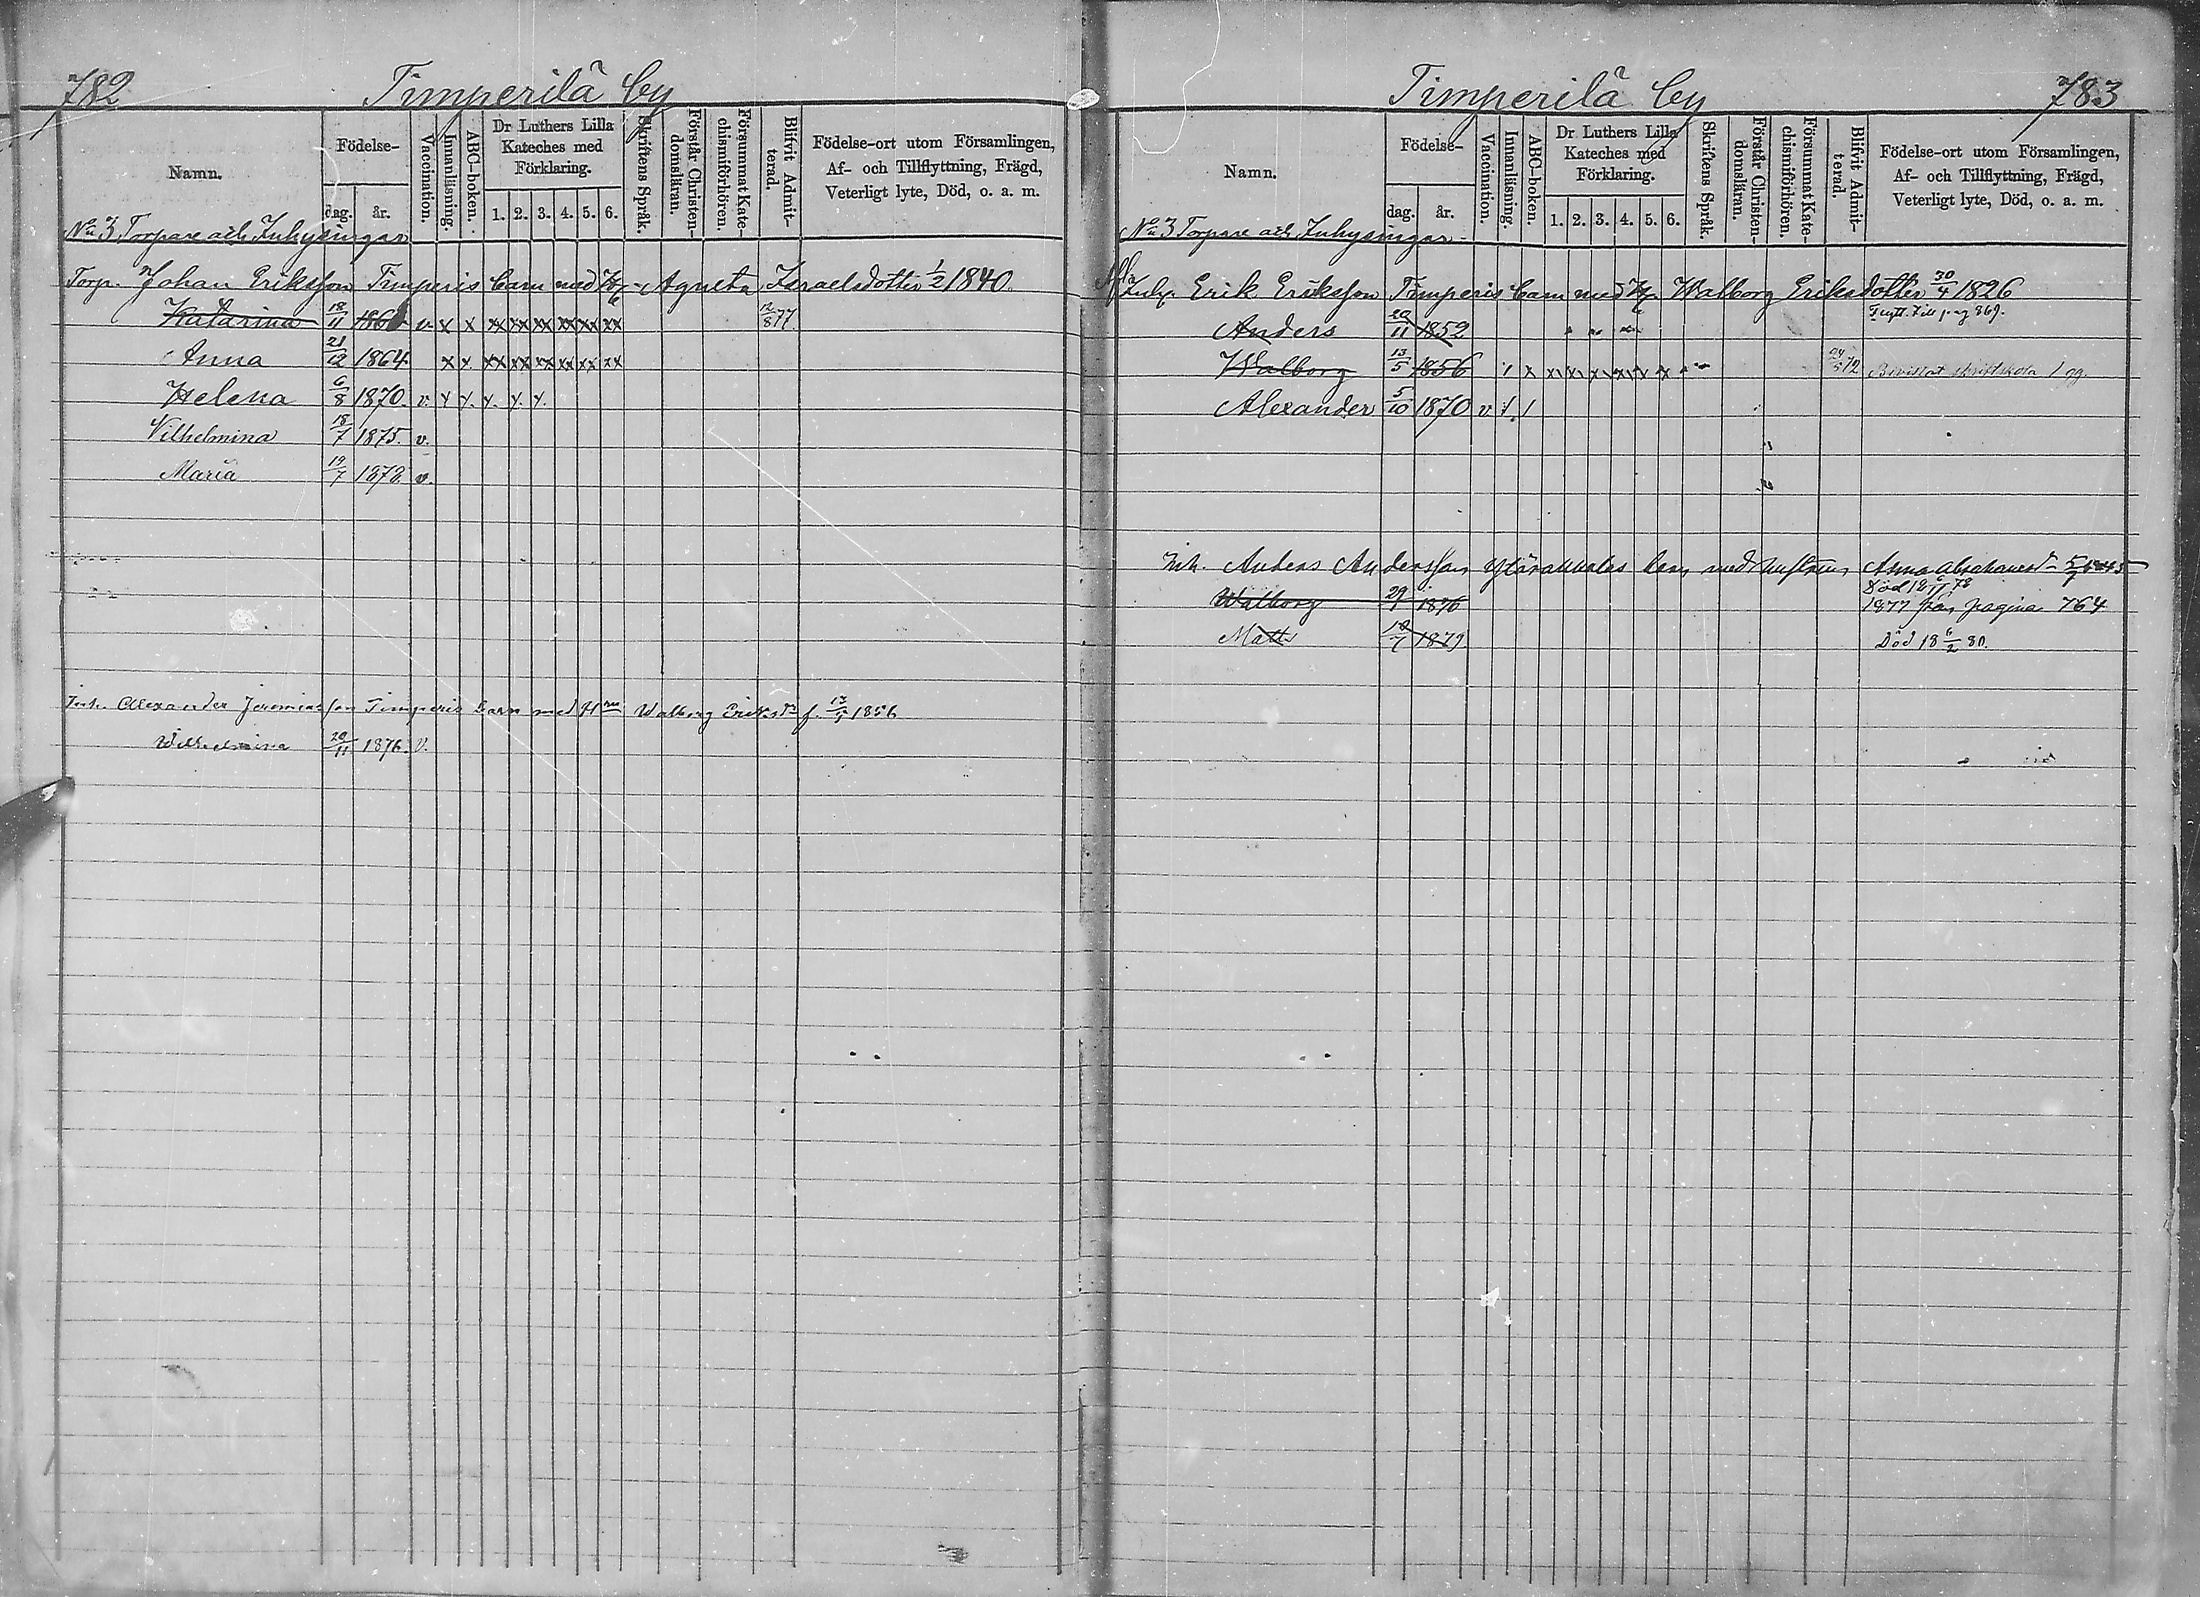 782 Timperilä by
Namn. Födelse- dag. år. Vaccination. Innanläsning. ABC-boken. Dr Luthers Lilla Kateches med Förklaring. 1. 2. 3. 4. 5. 6. Skriftens Språk. Förstår Christendomsläran. Försummat Katechismiförhören. Blifvit Admitterad. Födelse-ort utom Församlingen, Af- och Tillflyttning, Frägd, Veterligt lyte, Död, o. a. m.
No 3 Torpare och Inhysingar
Torp. Johan Eriksson Timperis barn med Agneta Israelsdotter 1/2 1840.
Katarina 18/11 v. x x xx xx xx xx xx xx 12/8 77
Anna 21/12 1864. x x xx xx xx xx xx xx
Helena 6/8 1870. v. x x. x. x. x.
Vilhelmina 18/7 1875. v.
Maria 19/7 1878. v.
Inh. Alexander Jeremiasson Timperis barn med Hru Walborg Eriksdr f. 13/5 1856
Wilhelmina 20/11 1876. v.
Timperilä by 783
Namn. Födelse- dag. år. Vaccination. Innanläsning. ABC-boken. Dr Luthers Lilla Kateches med Förklaring. 1. 2. 3. 4. 5. 6. Skriftens Språk. Förstår Christendomsläran. Försummat Katechismiförhören. Blifvit Admitterad. Födelse-ort utom Församlingen, Af- och Tillflyttning, Frägd, Veterligt lyte, Död, o. a. m.
No 3 Torpare och Inhysingar.
Inhy. Erik Eriksson Timperis barn med Walborg Eriksdotter 30/4 1826
Anders 20/11 1852 Flytt. till pag 369.
Walborg 13/5 1856 Bivistat skriftskola 1 gg.
Alexander 5/10 1870 v
Inh. Anders Andersson barn med hustrun Anna
Walborg 29/1 1876 1877 från pagina 764
Matts 18/7 1879. Död 18 6/2 80.